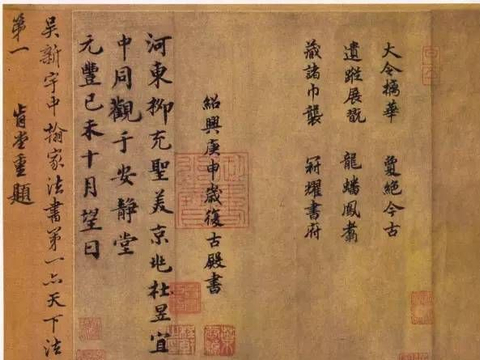 大令摛華 敻絕今古
遺蹤展翫 龍蟠鳳翥
藏諸巾襲 冠耀書府
紹興庚申歲復古殿書
河東柳充聖美京兆杜昱宜
中同觀于安靜堂
元豐己未十月望日
吳新宇中翰家法書第一亦天下法
第一 肯堂重題